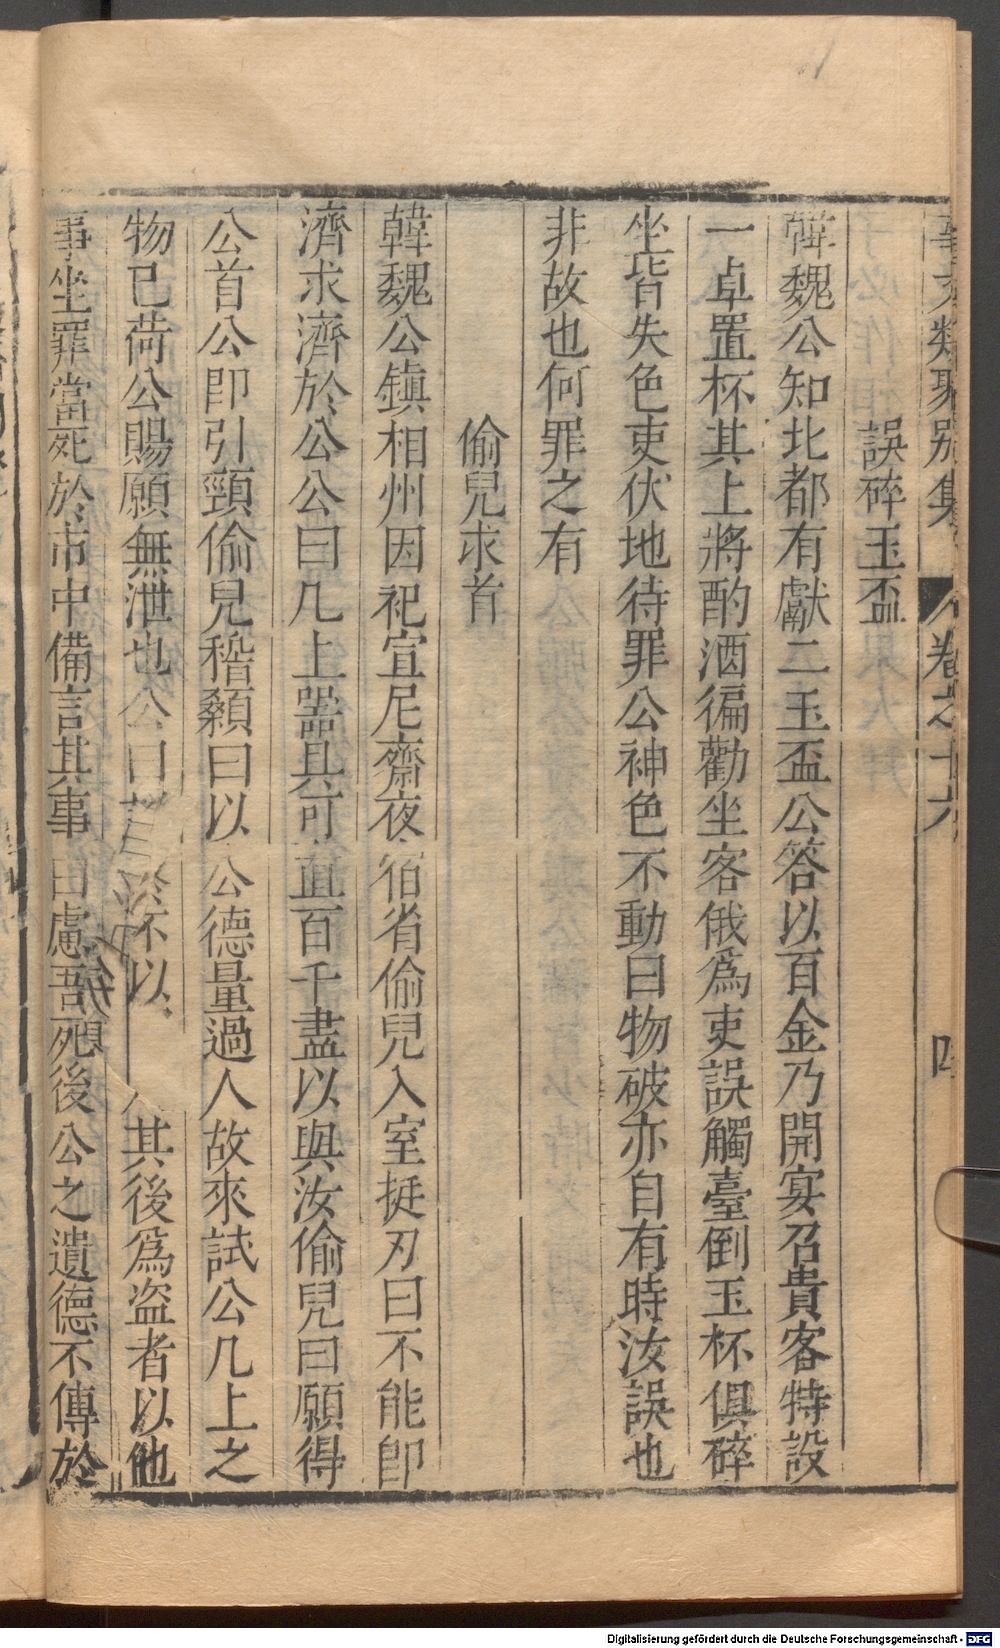 事文類聚別集 卷之十六 四
誤碎玉盃
韓魏公知北都有獻二玉盃公答以百金乃開宴召貴客特設
一卓置杯其上將酌酒徧勸坐客俄爲吏誤觸臺倒玉杯俱碎
坐皆失色吏伏地待罪公神色不動曰物破亦自有時汝誤也
非故也何罪之有
偷兒求首
韓魏公鎮相州因祀宣尼齋夜宿省偷兒入室挺刃曰不能卽
濟求濟於公公曰几上器具可直百千盡以與汝偷兒曰願得
公首公卽引頸偷兒稽顙曰以公德量過人故來試公几上之
物已荷公賜願無泄也公曰 不以 其後爲盜者以他
事坐罪當死於市中備言其事曰慮吾死後公之遺德不傳於
Digitalisierung gefördert durch die Deutsche Forschungsgemeinschaft - DFG